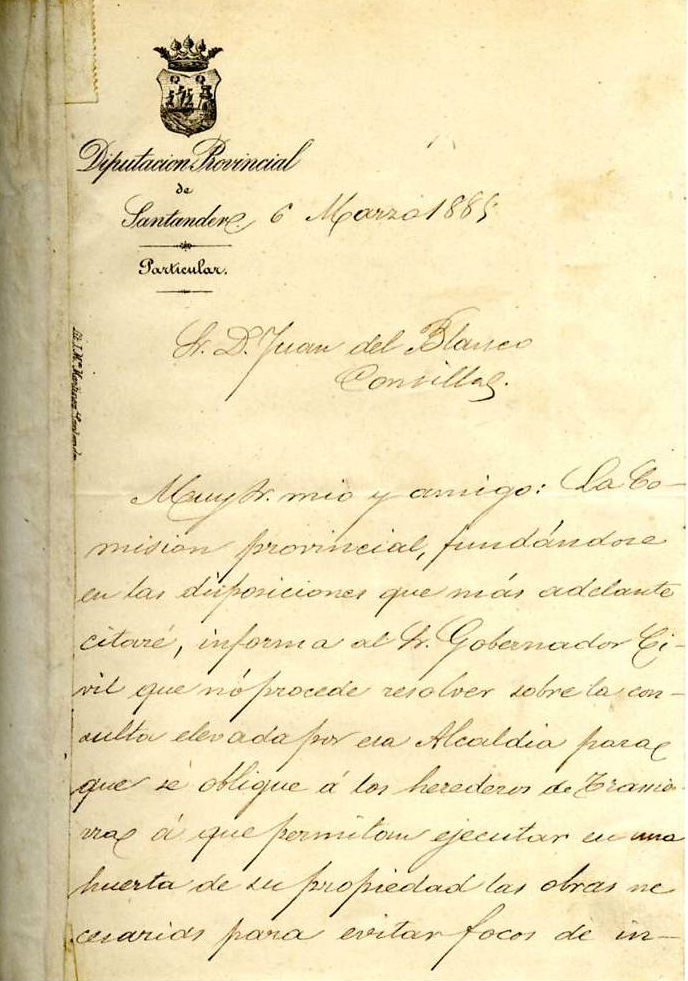 Diputacion Provincial
de
Santander 6 Marzo 1885
Particular.
Lit. J. Mª Martinez Santander
Sr. D. Juan del Blanco
Comillas.
Muy Sr. mio y amigo: La Co-
mision provincial, fundándose
en las disposiciones que más adelante
citaré, informa al Sr. Gobernador Ci-
vil que nó procede resolver sobre la con-
sulta elevada por esa Alcaldia para
que se obligue á los herederos de
á que permitan ejecutar en una
huerta de su propiedad las obras ne
cesarias para evitar focos de in-